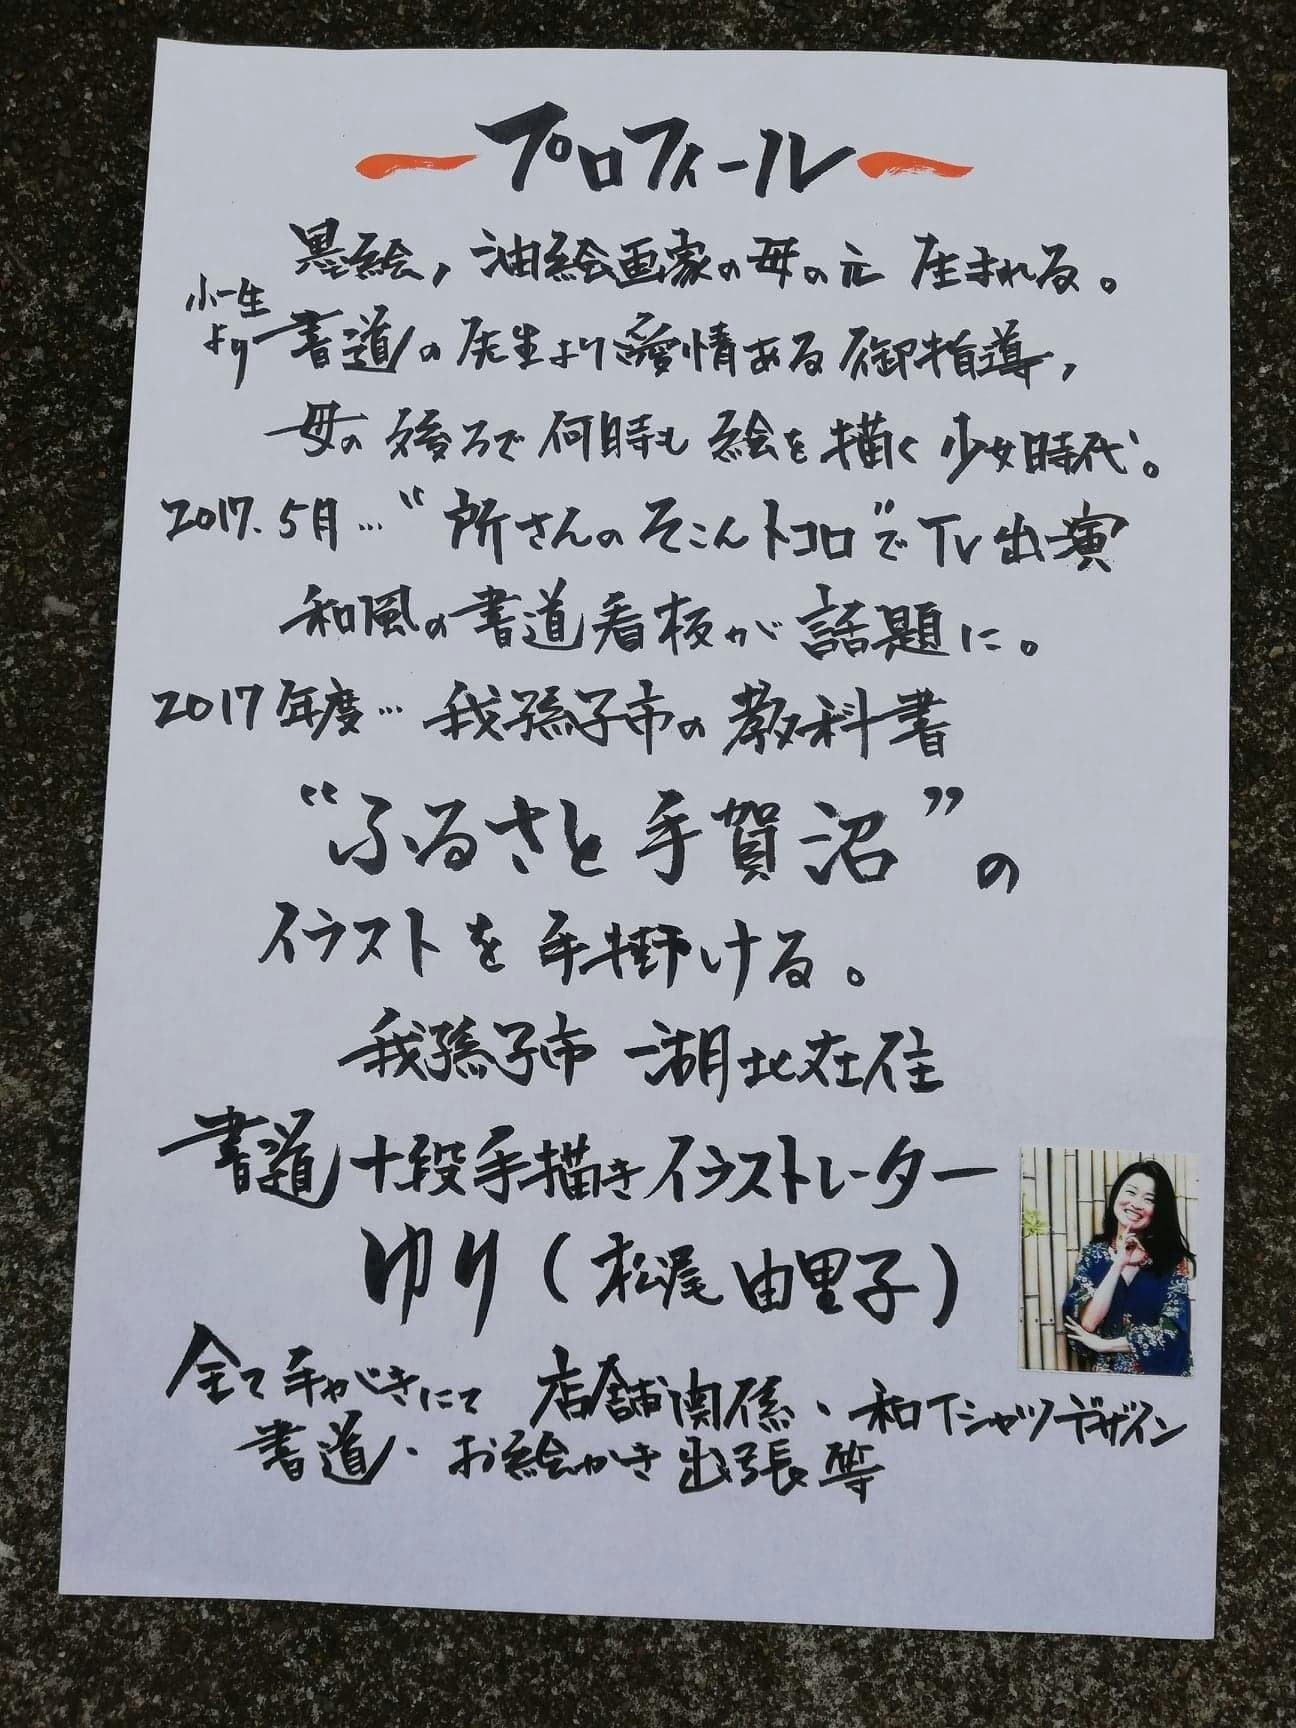 プロフィール
墨絵,油絵画家の母の元 生まれる。
小一生より書道の先生より愛情ある御指導,
母の後ろで何時も絵を描く少女時代。
2017.5月…“所さんのそこんトコロ”でTV出演
和風の書道看板が話題に。
2017年度…我孫子市の教科書
“ふるさと手賀沼”の
イラストを手掛ける。
我孫子市 湖北在住
書道十段手描きイラストレーター
ゆり(松尾 由里子)
全て手がきにて 店舗関係、和Tシャツデザイン
書道、お絵かき出張等